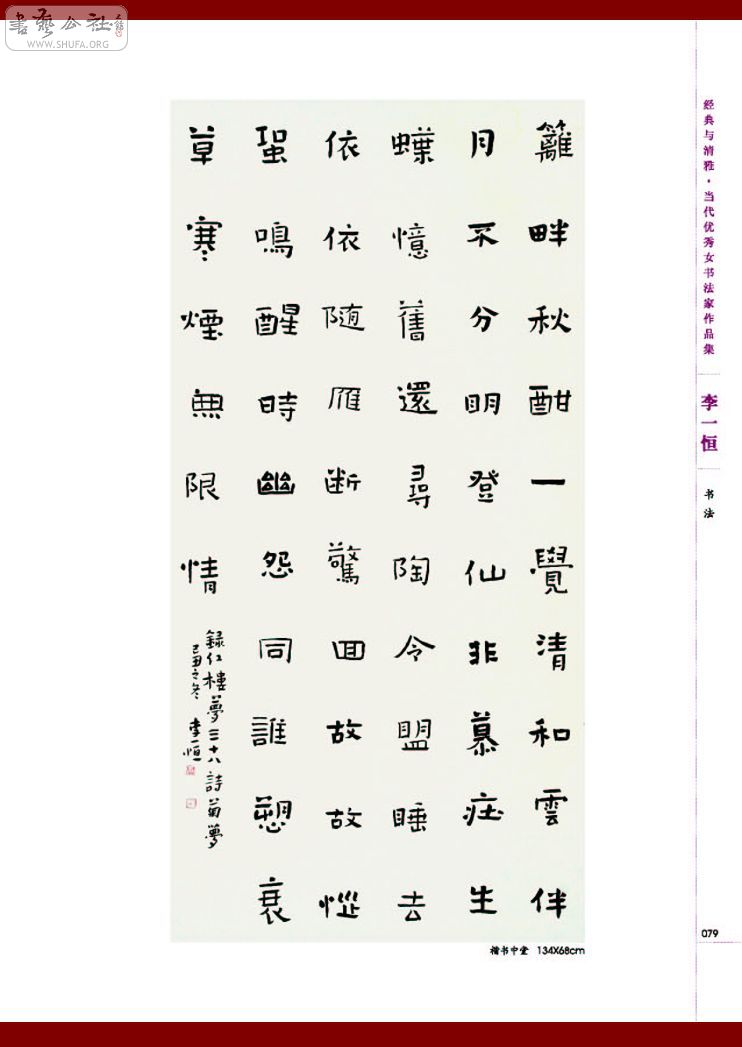 書藝公社
WWW.SHUFA.ORG
籬畔秋酣一覺清和雲伴
月不分明登仙非慕庄生
蝶憶舊還尋陶令盟睡去
依依随雁断驚囬故故惱
蛩鳴醒時幽怨同誰愬衰
草寒煙無限情
録红樓夢三十八詩菊夢
己丑之冬 李一恒
经典与清雅·当代优秀女书法家作品集
李一恒
书法
079
楷书中堂 134X68cm